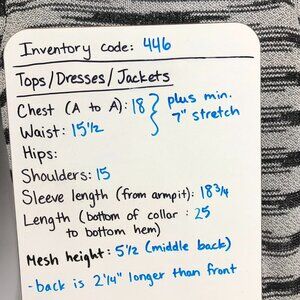 Inventory code: 446
Tops/Dresses/Jackets
Chest (A to A): 18 } plus min.
Waist: 15 1/2 7" stretch
Hips:
Shoulders: 15
Sleeve length (from armpit): 18 3/4
Length (bottom of collar : 25
to bottom hem)
Mesh height: 5 1/2 (middle back)
-back is 2 1/4" longer than front